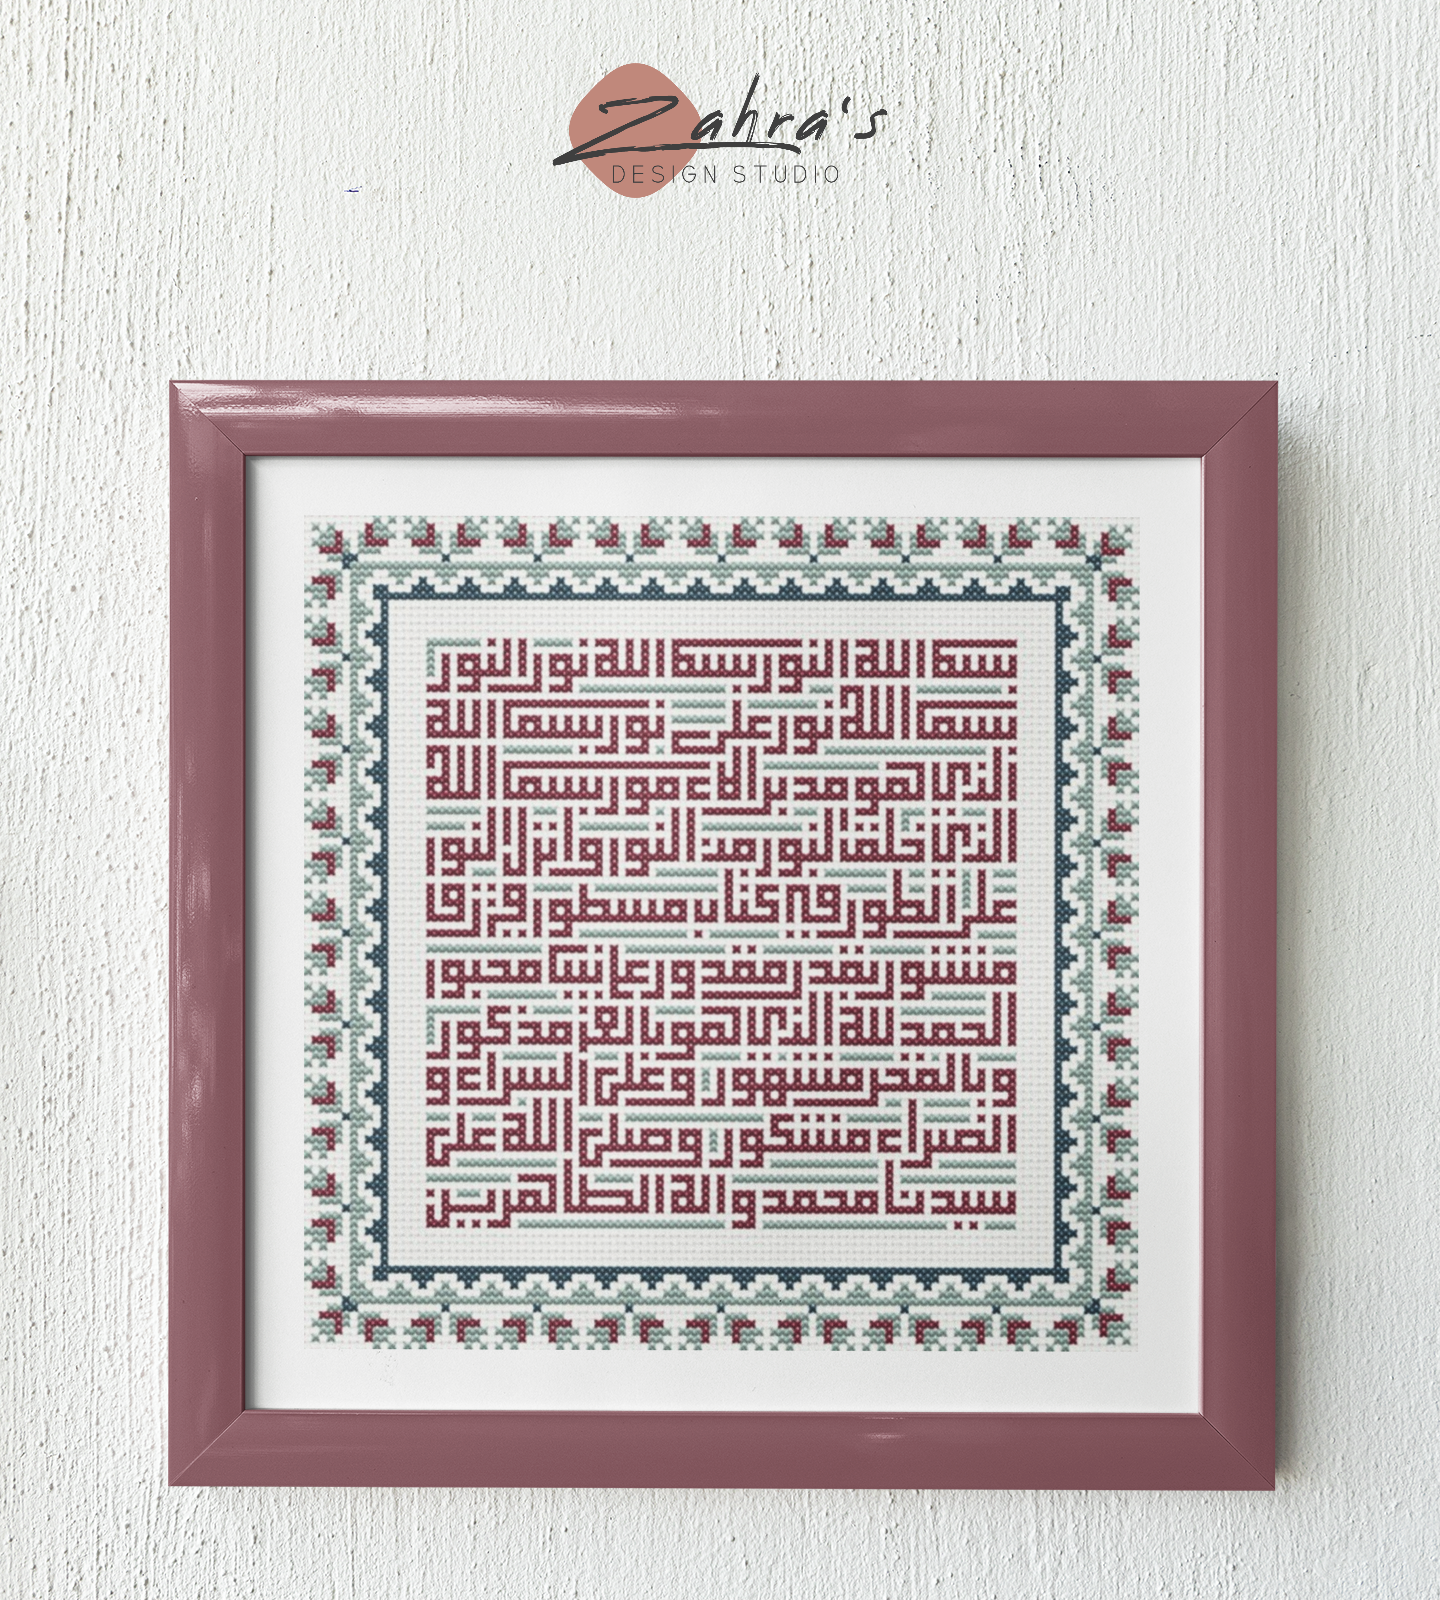 Zahra's
DESIGN STUDIO
بسم الله النور بسم الله نور النور
بسم الله نور على نور بسم الله
الذي هو مدبر الامور بسم الله
الذي خلق النور من النور وانزل النور
على الطور في كتاب مسطور في رق
منشور بقدر مقدور على نبي محبور
الحمد لله الذي هو بالعز مذكور
وبالفخر مشهور وعلى السراء و
الضراء مشكور وصلى الله على
سيدنا محمد واله الطاهرين